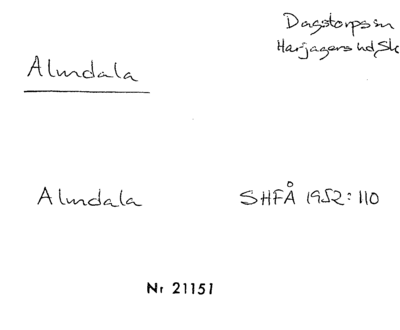 Dagstorps sn
Harjagers hd, Sk
Almdala
Almdala SHFÅ 1952:110
Nr 21151